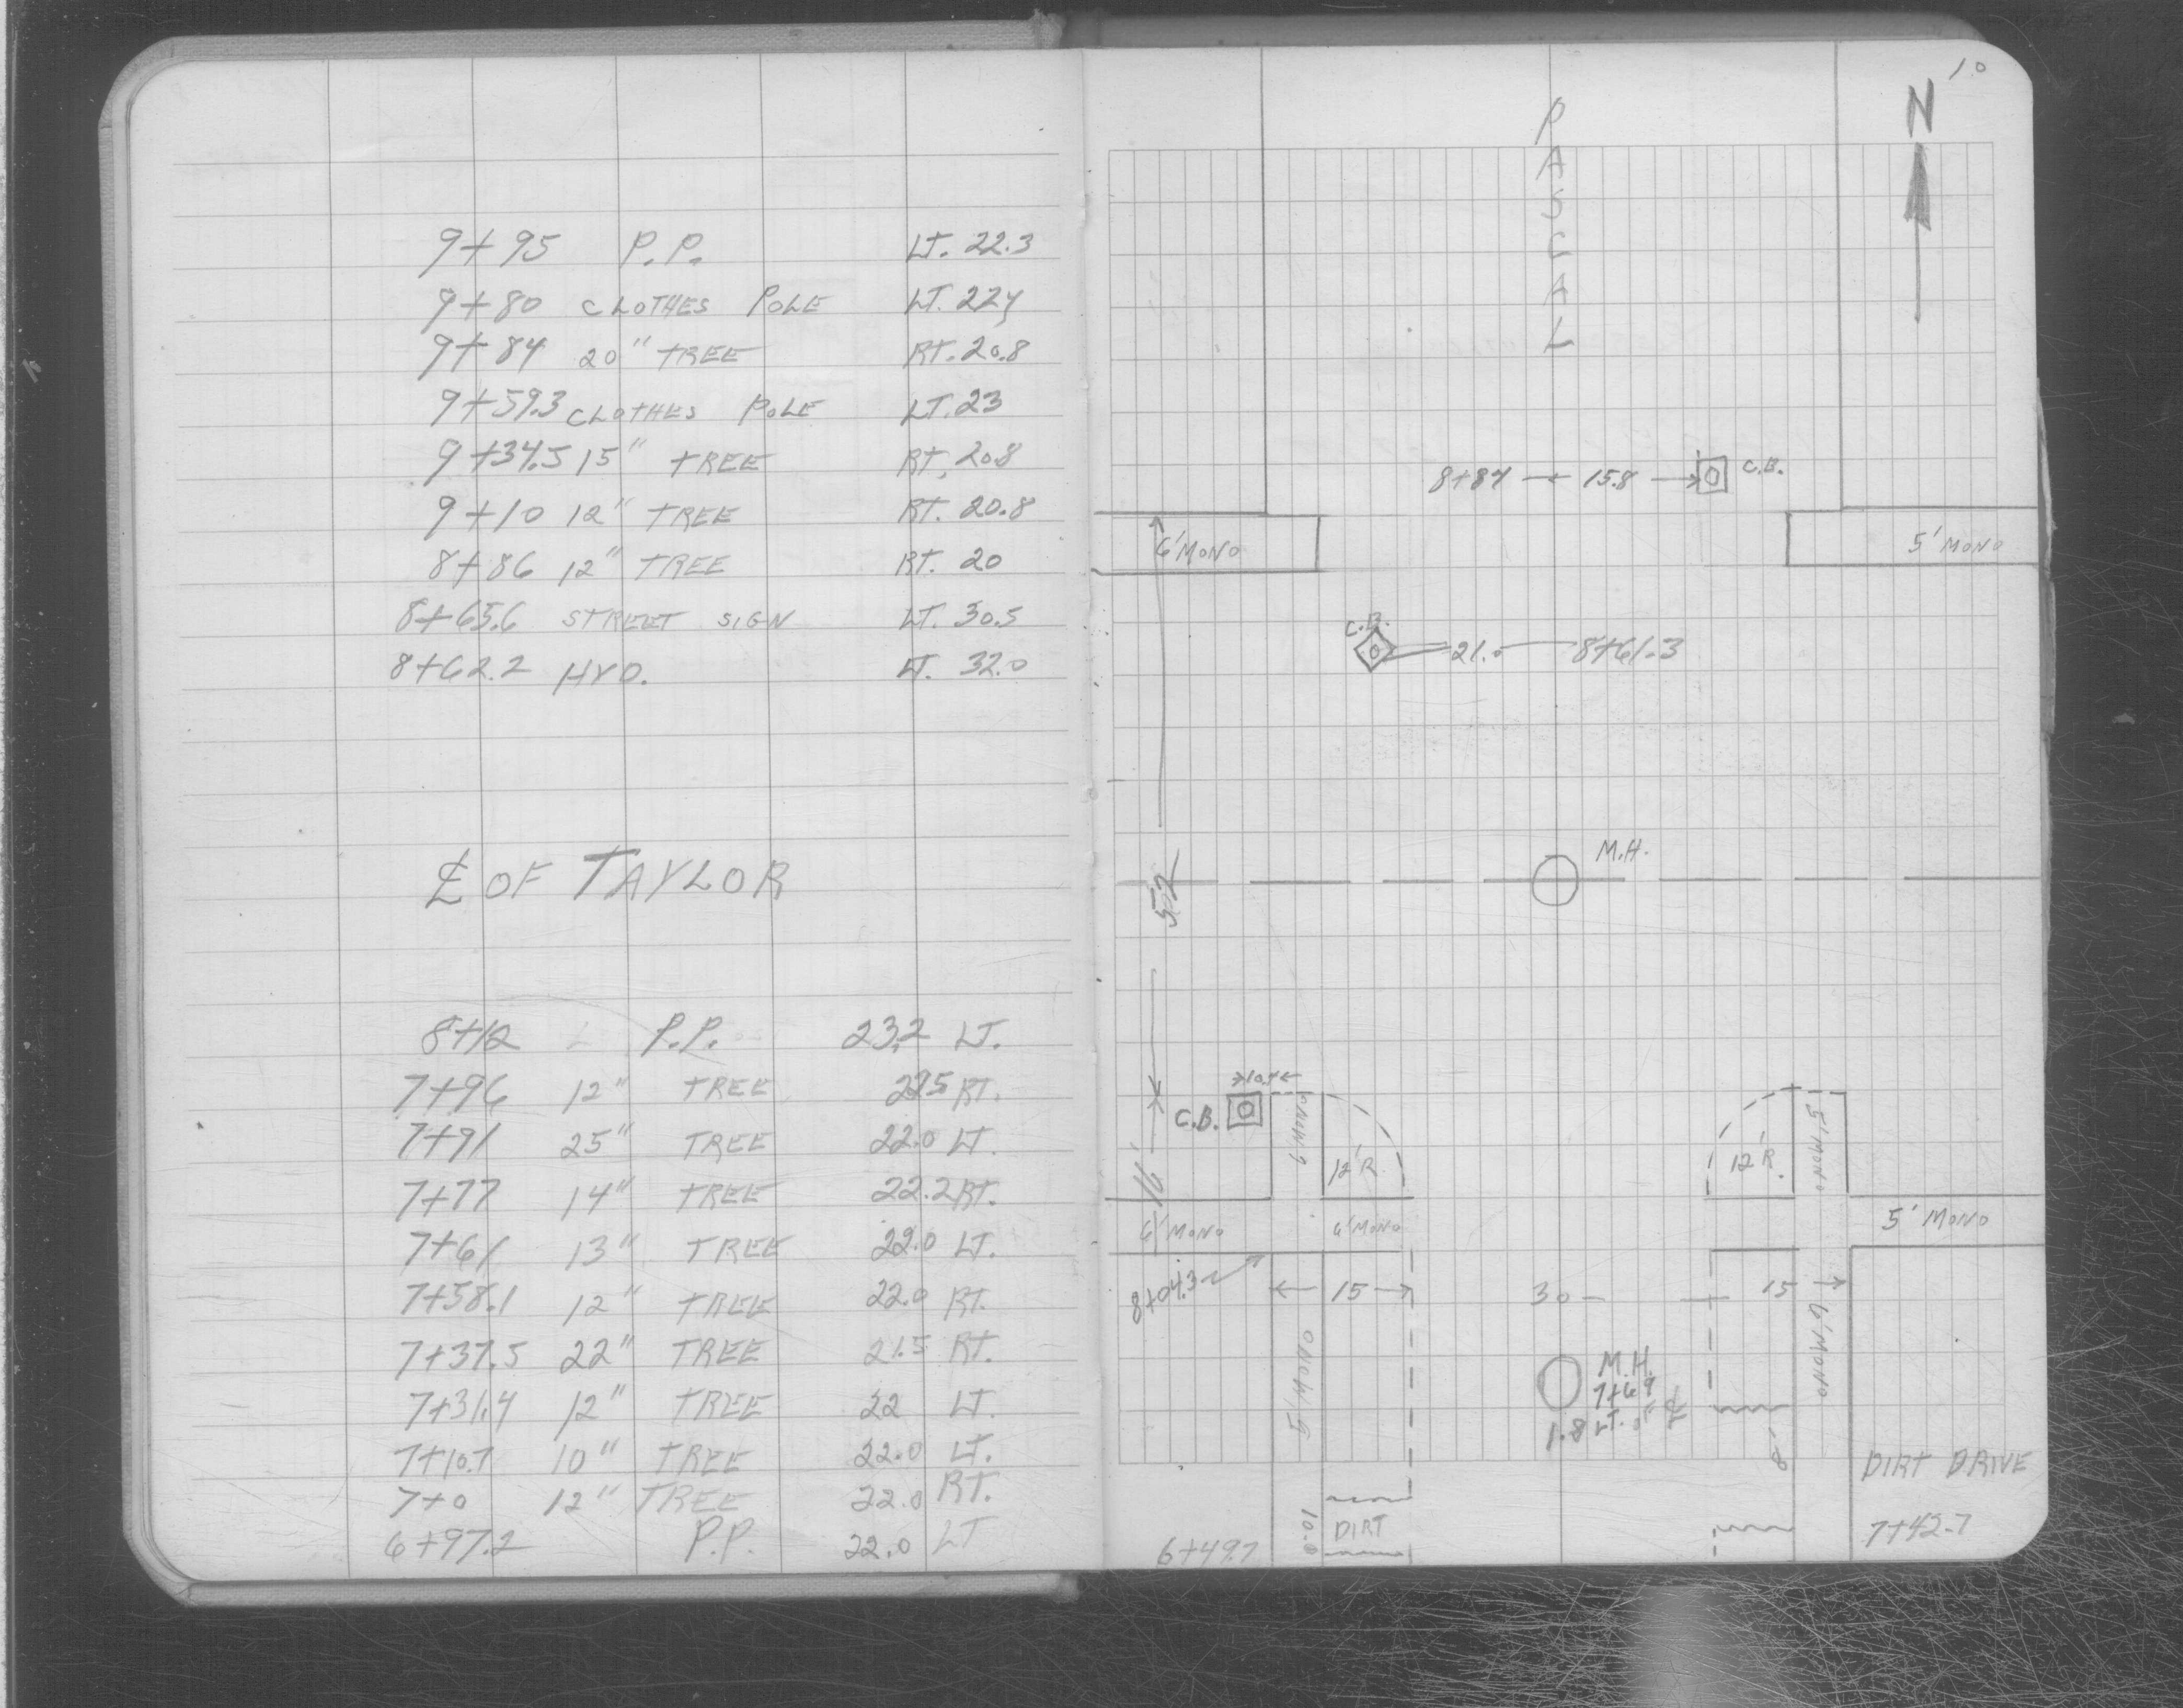 9+95 P.P. LT. 22.3
9+80 CLOTHES POLE LT. 22
9+84 20" TREE RT. 20.8
9+59.3 CLOTHES POLE LT. 23
9+34.5 15" TREE RT. 20.8
9+10 12" TREE RT. 20.8
8+86 12" TREE RT. 20
8+65.6 STREET SIGN LT. 30.5
8+62.2 HYD. LT. 32.0
℄ OF TAYLOR
8+12 P.P. 23.2 LT.
7+96 12" TREE RT.
7+91 25" TREE 22.0 LT.
7+77 14" TREE 22.2 RT.
7+61 13" TREE 22.0 LT.
7+58.1 12" TREE 22.0 RT.
7+37.5 22" TREE 21.5 RT.
7+31.4 12" TREE 22 LT.
7+10.7 10" TREE 22.0 LT.
7+0 12" TREE 22.0 RT.
6+97.2 P.P. 22.0 LT
10
N
PASCAL
8+87 15.8 C.B.
6' MONO
5' MONO
C.B.
21.0 8+61.3
M.H.
52
C.B.
6' MONO
12'R.
12'R.
5' MONO
16'
6' MONO
6' MONO
5' MONO
8+04.3
15
30
15
5' MONO
6' MONO
M.H.
7+69
1.8 LT. OF ℄
8
DIRT DRIVE
10.0
DIRT
6+49.7
7+42.7